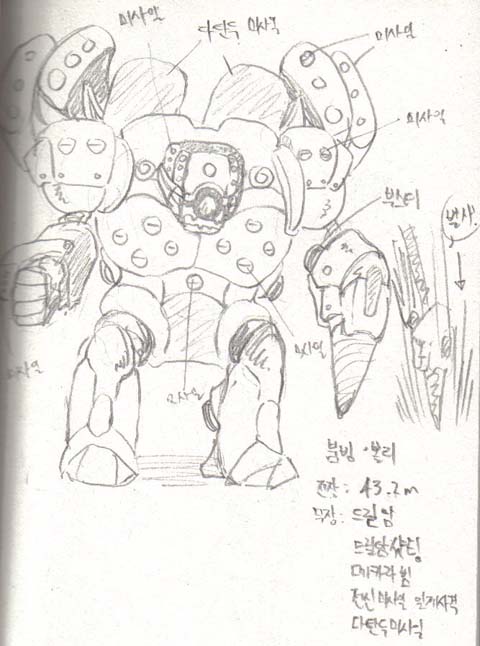 미사일
다탄두 미사일
미사일
미사일
부스터
발사
미사일
미사일
미사일
전장: 43.2m
무장: 드릴암
드릴암
빔
전신미사일 일제사격
다탄두미사일